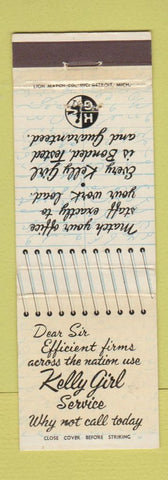 LION MATCH CO., INC. DETROIT, MICH.
Match your office
staff exactly to
your work load.
Every Kelly Girl
is Bonded Tested
and Guaranteed.
Dear Sir
Efficient firms
across the nation use
Kelly Girl
Service
Why not call today
CLOSE COVER BEFORE STRIKING